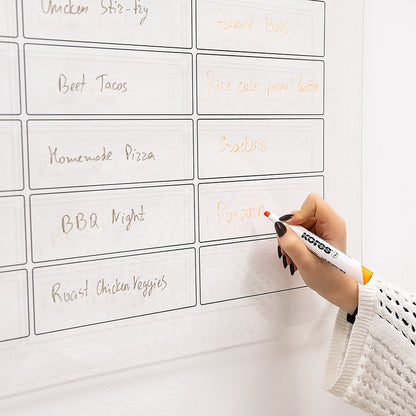 Chicken Stir-fry
Granola Bars
Beef Tacos
Rice cakes peanut butter
Homemade Pizza
Crackers
BBQ Night
Popcorn
Roast Chicken Veggies
KORES